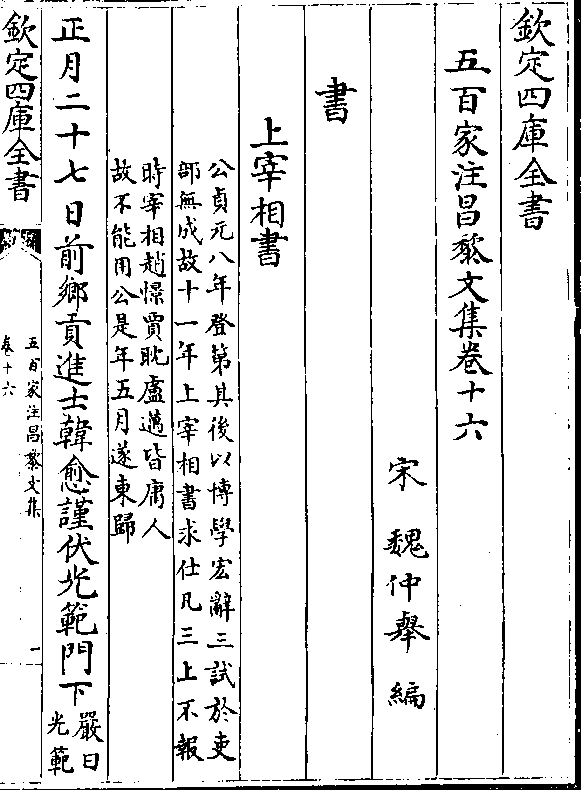 欽定四庫全書
五百家注昌黎文集卷十六
宋 魏仲舉 編
書
上宰相書
公貞元八年登第其後以博學宏辭三試於吏
部無成故十一年上宰相書求仕凡三上不報
時宰相趙憬賈耽盧邁皆庸人
故不能用公是年五月遂東歸
正月二十七日前鄉貢進士韓愈謹伏光範門下
嚴曰
光範
欽定四庫全書
五百家注昌黎文集
卷十六
一